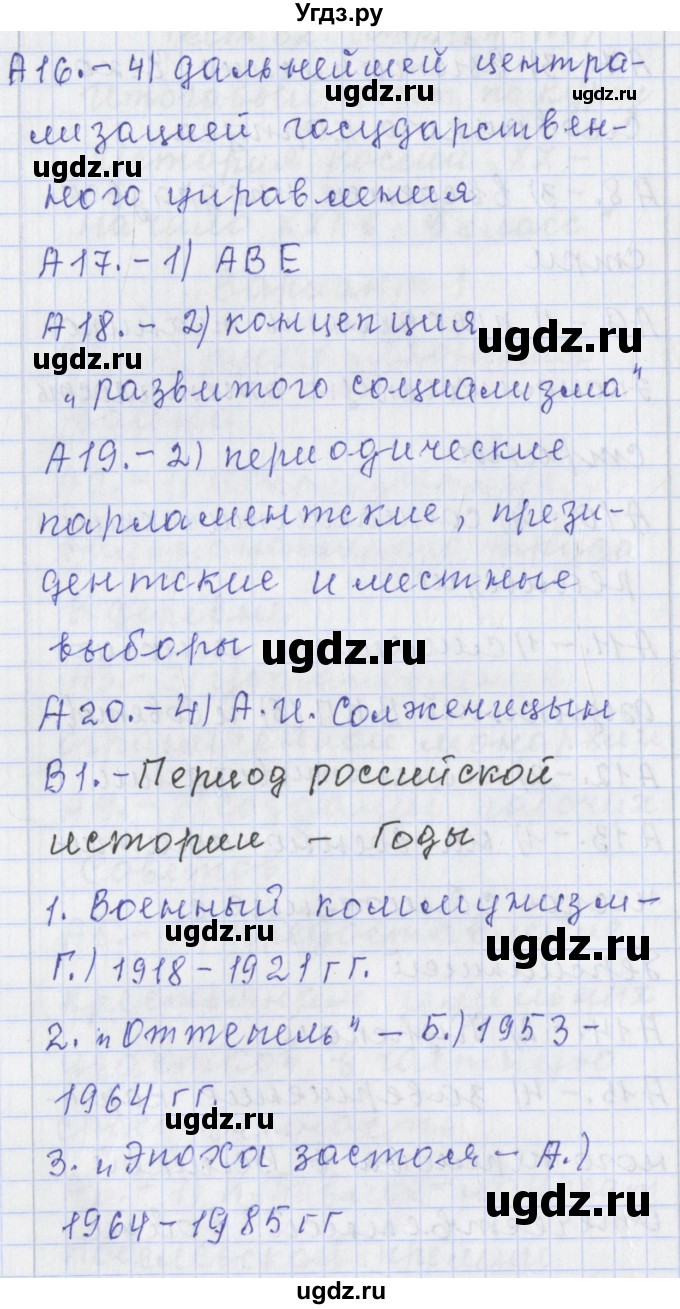 Угдз.ру
А16.– 4) дальнейшей центра-
лизацией государствен-
ного управления
А17.– 1) АВЕ
А18.– 2) концепция
„развитого социализма"
А19.– 2) периодические
парламентские, прези-
дентские и местные
выборы
А20.– 4) А.И. Солженицын
В1.– Период российской
истории – Годы
1. Военный коммунизм –
Г.) 1918 – 1921 гг.
2. „Оттепель" – Б.) 1953 –
1964 гг.
3. „Эпоха застоя – А.)
1964 – 1985 гг
ugdz.ru
ugdz.ru
ugdz.ru
ugdz.ru
ugdz.ru
ugdz.ru
ugdz.ru
ugdz.ru
ugdz.ru
ugdz.ru
ugdz.ru
ugdz.ru